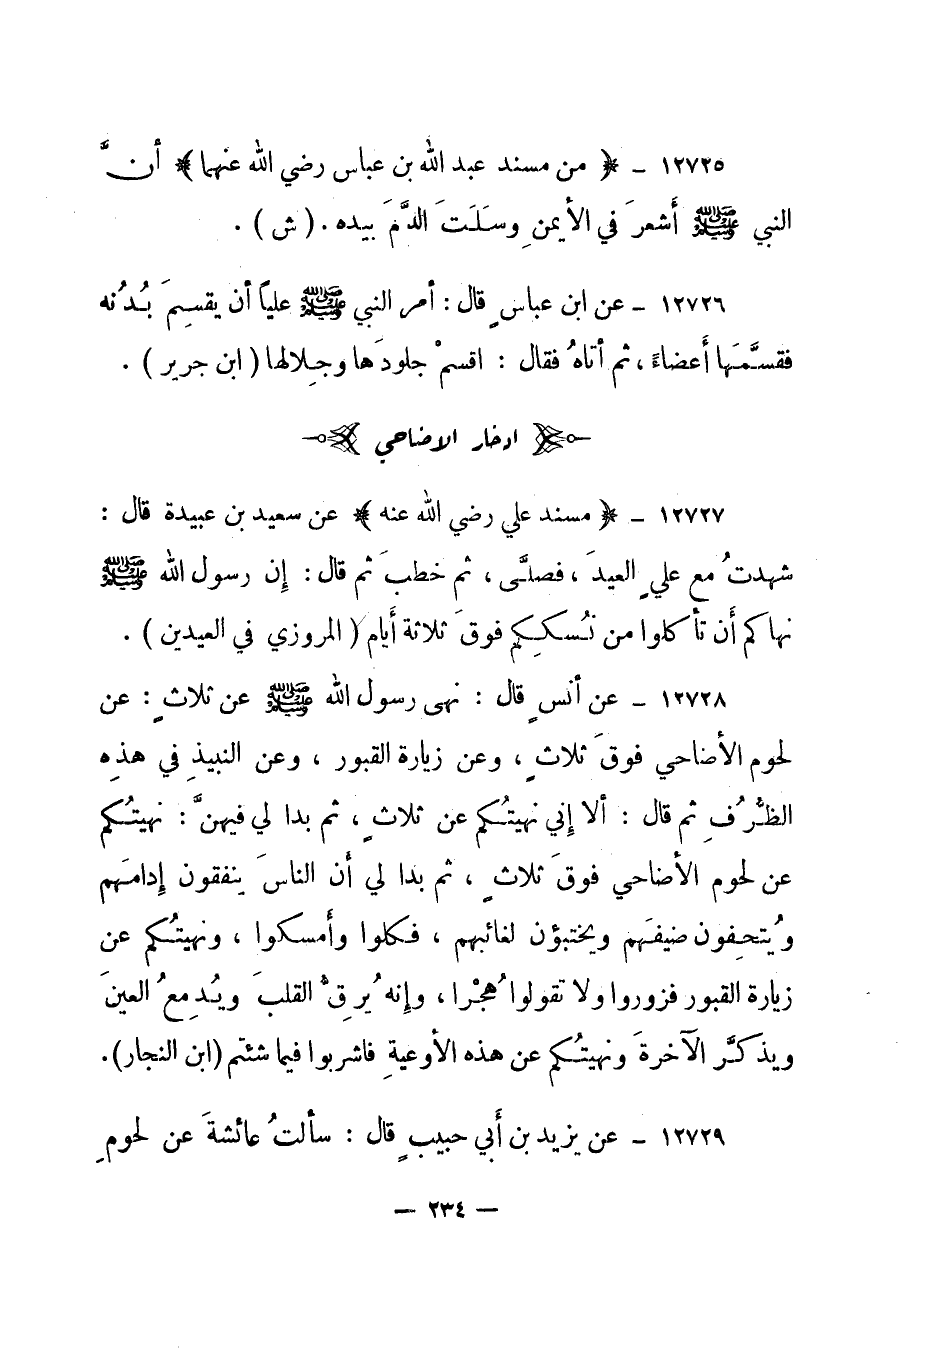 ١٢٧٢٥ ـ ﴿ من مسند عبد الله بن عباس رضي الله عنهما ﴾ أنَّ
النبي ﷺ أشعرَ في الأيمنِ وسَلَتَ الدَّمَ بيده . ( ش ) .
١٢٧٢٦ ـ عن ابن عباسٍ قال : أمر النبي ﷺ علياً أن يقسِمَ بُدُنه
فقسَّمَها أعضاءً ، ثم أتاهُ فقال : اقسمْ جلودَها وجِلالها ( ابن جرير ) .
ادخار الاضاحي
١٢٧٢٧ ـ ﴿ مسند علي رضي الله عنه ﴾ عن سعيد بن عبيدة قال :
شهدتُ مع عليٍ العيدَ ، فصلَّى ، ثم خطبَ ثم قال : إن رسول الله ﷺ
نهاكم أن تأكلوا من نُسككِم فوقَ ثلاثة أيام ( المروزي في العيدين ) .
١٢٧٢٨ ـ عن أنسٍ قال : نهى رسول الله ﷺ عن ثلاثٍ : عن
لحوم الأضاحي فوقَ ثلاثٍ ، وعن زيارة القبور ، وعن النبيذِ في هذهِ
الظُّرُفِ ثم قال : ألا إني نهيتُكم عن ثلاثٍ ، ثم بدا لي فيهنَّ : نهيتُكم
عن لحوم الأضاحي فوقَ ثلاثٍ ، ثم بدا لي أن الناسَ ينفقون إدامَهم
ويُتحِفون ضيفَهم ويختبؤن لغائبهم ، فكلوا وأمسكوا ، ونهيتُكم عن
زيارة القبور فزوروا ولا تقولوا هُجْرا ، وإنه يُرِقُّ القلبَ ويُدمعُ العينَ
ويذكَّر الآخرةَ ونهيتُكم عن هذه الأوعيةِ فاشربوا فيما شئتم (ابن النجار).
١٢٧٢٩ ـ عن يزيد بن أبي حبيبٍ قال : سألتُ عائشةَ عن لحومِ
— ٢٣٤ —